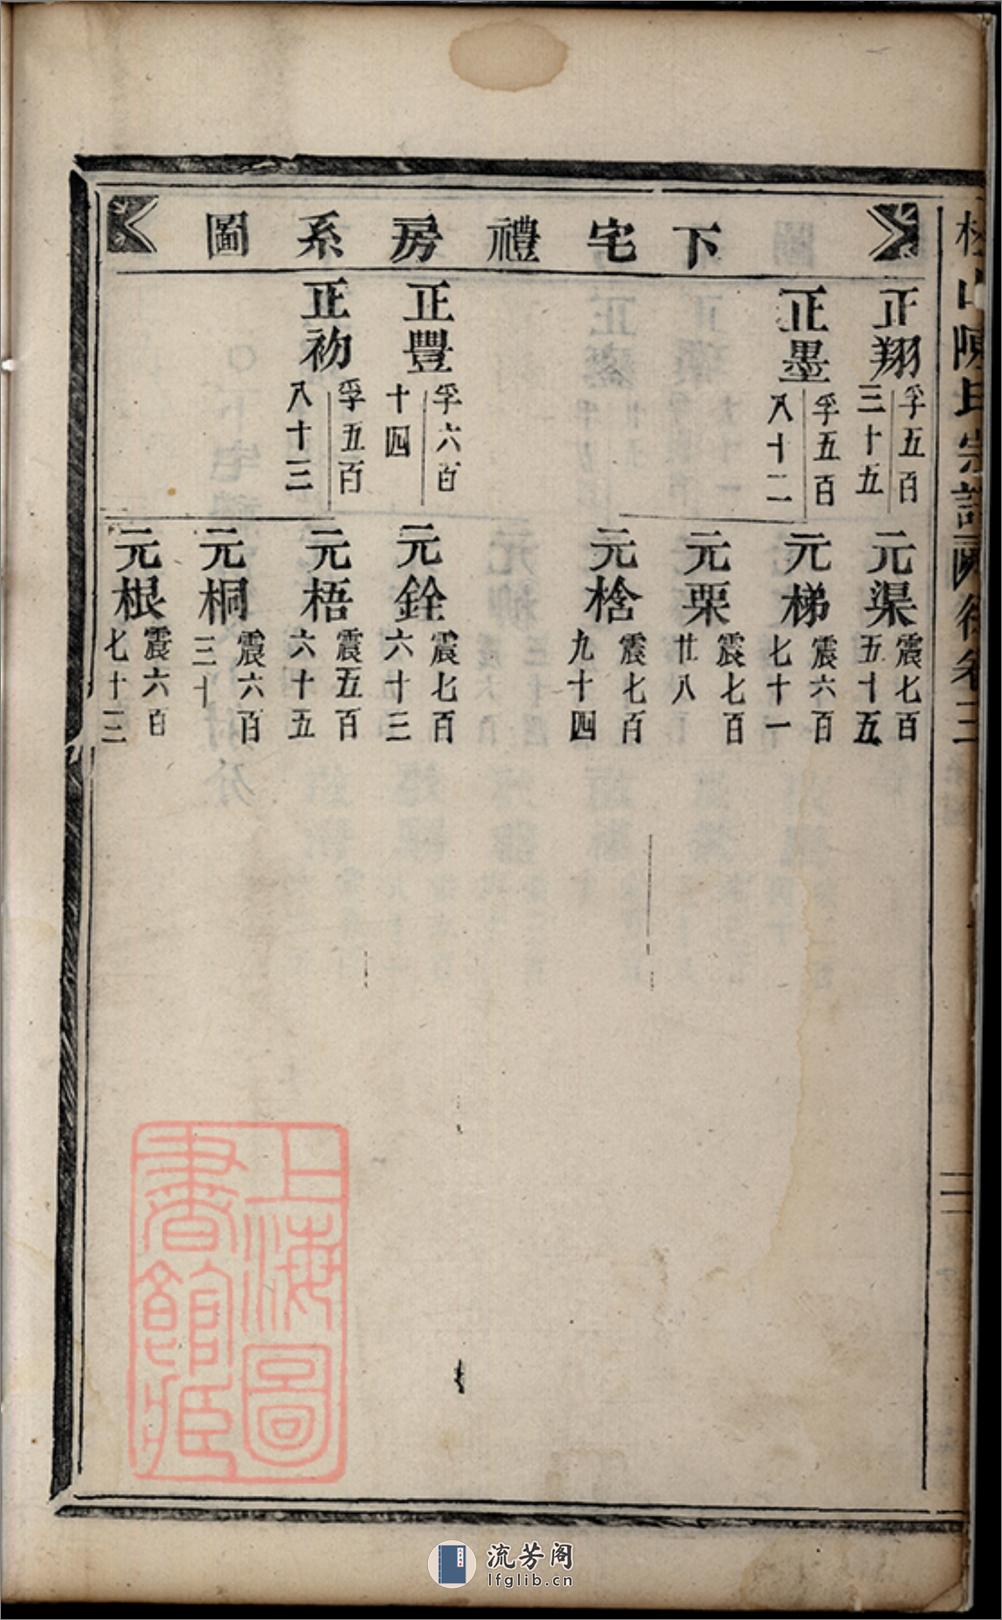 下宅禮房系圖
正翔 孚五百三十五
正墨 孚五百八十二
正豐 孚六百十四
正初 孚五百八十三
元渠 震七百五十五
元梯 震六百七十一
元栗 震七百廿八
元捨 震七百九十四
元銓 震七百六十三
元梧 震五百六十五
元桐 震六百三十
元根 震六百七十三
山陳氏宗譜 後卷三
二
上海圖書館藏
流芳阁
lfglib.cn